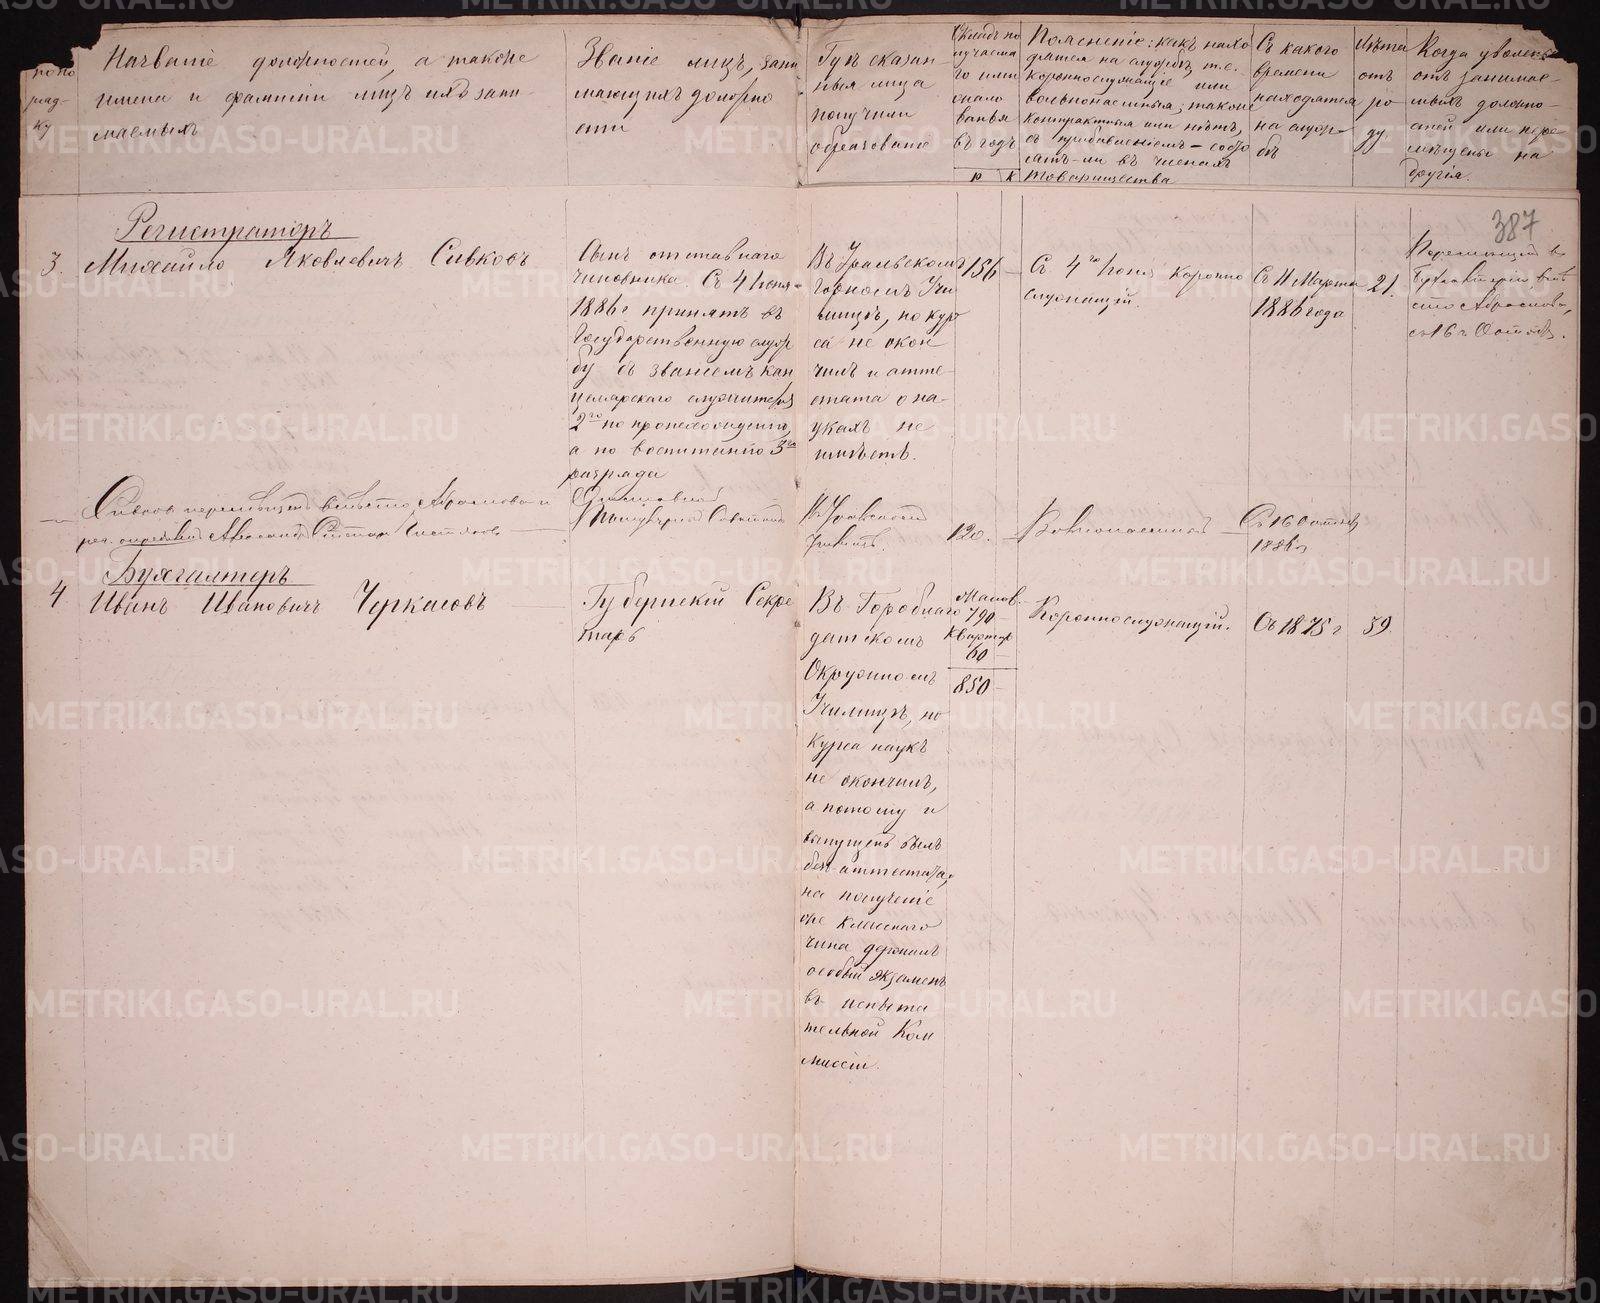 по по
ряд-
ку
Названіе должностей, а также
имена и фамиліи лицъ ихъ зани-
маемыхъ
Званіе лицъ, зани
мающихъ должно
сти
Гдѣ сказан-
ныя лица
получили
образованіе
Окладъ по
лучаема
го ими
жало
ванья
въ годъ
р к
Поясненіе: какъ нахо
дятся на службѣ т.е.
Коронно служащіе или
вольнонаемныя; также
контрактныя или нѣтъ,
съ прибавленіемъ – состо
ятъ-ли въ членахъ
товарищества
Съ какого
времени
находятся
на служ-
бѣ
Лѣта
отъ
ро
ду.
Когда уволены
отъ занимае-
мыхъ должно-
стей или пере
мѣщены на
другія.
387
Регистраторъ
3. Михаило Яковлевичъ Сивковъ
Сынъ отставнаго
чиновника. Съ 4 Іюня
1886 г принятъ въ
Государственную служ
бу съ званіемъ кан
целярскаго служителя
2го по происхожденію,
а по воспитанію 3го
разряда
Въ Уральскомъ
Горномъ Учи
лищѣ, но кур
са не окон
чилъ и атте-
стата о на-
укахъ не
имѣетъ.
156 –
Съ 4го Іюня коронно
служащій.
Съ 11 Марта
1886 года
21.
Перемѣщенъ въ
Бухгалтеріи, вмѣ
сто Абрамова,
съ 16го Октяб.
Сивковъ перемѣщенъ вмѣсто Абрамова и
рег. опредѣленъ Александръ Чистяковъ
120. –
Вольнонаемной
Съ 16 Октяб
1886 г
Бухгалтеръ
4 Иванъ Ивановичъ Черкасовъ
Губернскій Секре
тарь
Въ Гороблаго
датскомъ
Окружномъ
Училищѣ, но
курса наукъ
не окончилъ,
а потому и
выпущенъ былъ
безъ аттестата,
на полученіе
же класснаго
чина держалъ
особый экзаменъ
въ испыта
тельной Ком
миссіи.
Жалов.
790 –
Квартир
60 –
850 –
Коронно служащій.
Съ 1875 г
39.
METRIKI.GASO-URAL.RU